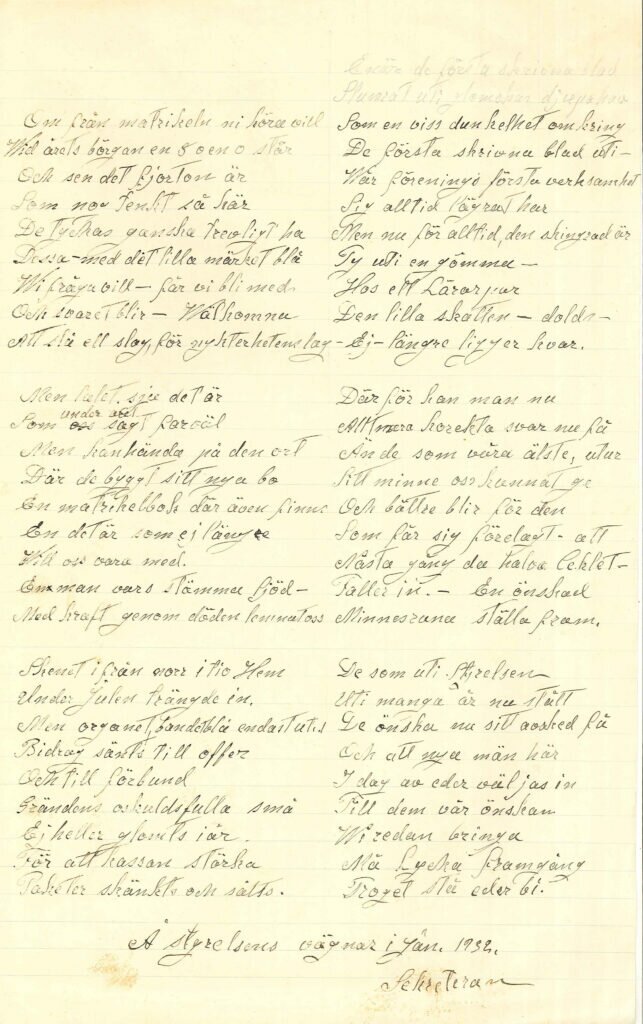 Om från matrikeln ni höra vill
Wid årets början en 8 o en 0 står
Och sen det fjorton är
Som nog tänkt så här
De tyckas ganska trevligt ha
Dessa - med det lilla märket blå
Wi fråga vill - får vi bli med
Och svaret blir - Wälkomna
Att slå ett slag, för nykterhetens lag -

Men sju det är
Som under året sagt farväl
Men kanhända på den ort
Där de byggt sitt nya bo
En matrikelbok där även finns
En det är som ej längre
Will oss vara med.
En man vars stämma ljöd -
Med kraft genom döden lemnat oss

Skenet ifrån norr i tio Hem
Under Julen trängde in.
Men organet, bandet blå endast
Bidrag sänts till offer
Och till förbund
Gråndens oskuldsfulla små
Ej heller glömts i år.
För att kassan stärka
Paketer skänkts och sålts.

Enär de första skrivna blad
Slumrat uti glömskans djup
Som en viss dunkelhet omkring
De första skrivna blad uti -
Wår förenings första verksamhet
Sig alltid lägrat har
Men nu för alltid, den skingrad är
Ty uti en gömma -
Hos ett Lärarpar
Den lilla skatten - dolds -
Ej - längre ligger kvar.

Därför kan man nu
Allt mera korekta svar nu få
Än de som våra älste, utur
Sitt minne oss kunnat ge
Och bättre blir för den
Som får sig förelagt - att
Nästa gång du halva seklet -
Faller in. - En önskad
Minnesruna ställa fram.

De som uti Styrelsen
Uti många år nu stått
De önska nu sitt avsked få
Och att nya män här
I dag av eder väljas in
Till dem vår önskan
Wi redan bringa
Må Lycka framgång
Troget stå eder bi.

Å styrelsens vägnar i Jan. 1932.
Sekreteran